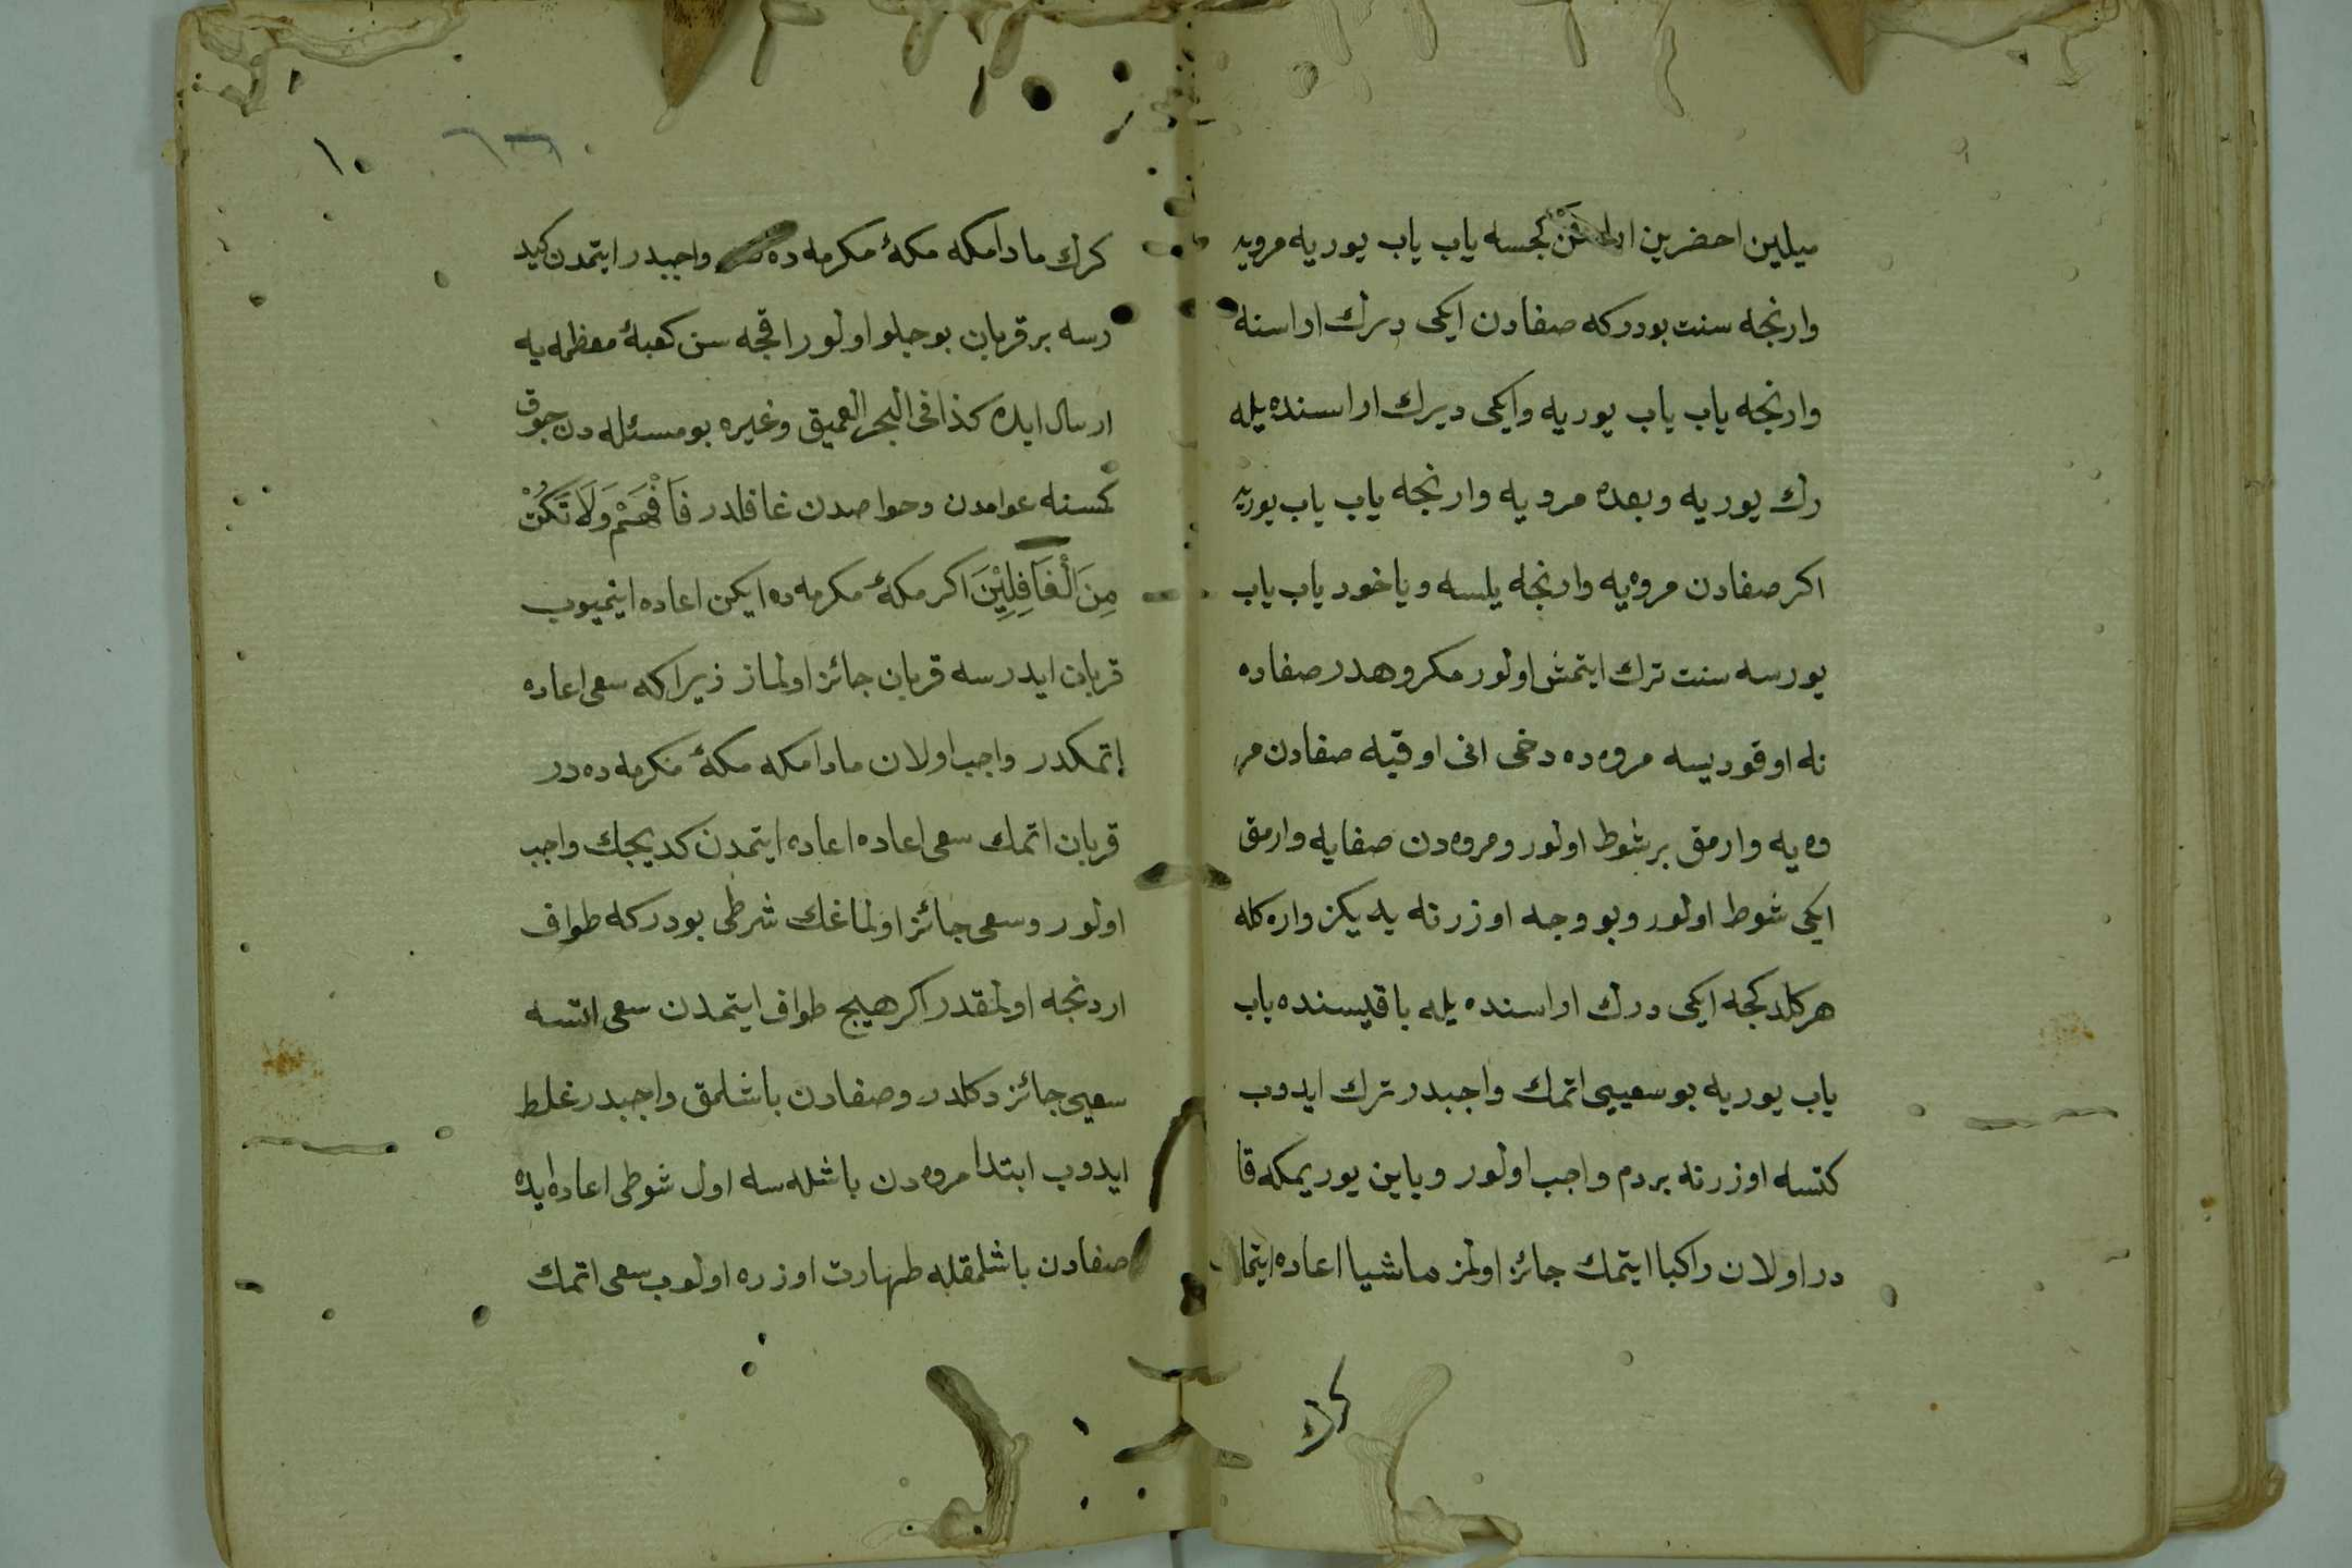 ميلين احضرين ارا كجسه ياب ياب يوريه مرويه
وارنجه سنت بودركه صفادن ايكى ديرك اراسنه
وارنجه ياب ياب يوريه وايكى ديرك اراسنده يله
رك يوريه وبعده مرويه وارنجه ياب ياب يوريه
اكر صفادن مروه يه وارنجه يلسه وياخود ياب ياب
يورسه سنت ترك ايتمش اولور مكروهدر صفاده
نه اوقوديسه مروه ده دخى انى اوقيه صفادن مر
وه يه وارمق برشوط اولور ومروه دن صفايه وارمق
ايكى شوط اولور وبو وجه اوزرنه يديكز واره كله
هركلدكجه ايكى درك اراسنده يله باقيسنده ياب
ياب يوريه بو سعييى اتمك واجبدر ترك ايدوب
كتسه اوزرنه بردم واجب اولور وياين يوريمكه قا
در اولان راكبا ايتمك جائز اولمز ماشيا اعاده ايتما
كرك
١٠
كرك مادامكه مكۀ مكرمه ده واجبدر ايتمدن كيد
رسه بر قربان بوجلو اولور اقجه سن كعبۀ معظمه يه
ارسال ايده كذا فى البحر العميق وغيره بو مسئله دن جوق
كمسنه عوامدن وخواصدن غافلدر فَافْهَمْ وَلَا تَكُنْ
مِنَ الْغَافِلِيْنَ اكر مكۀ مكرمه ده ايكن اعاده ايتميوب
قربان ايدرسه قربان جائز اولماز زيراكه سعى اعاده
إتمكدر واجب اولان مادامكه مكۀ مكرمه ده در
قربان اتمك سعى اعاده اعاده ايتمدن كديجك واجب
اولور وسعى جائز اولماغك شرطى بودركه طواف
اردنجه اولمقدر اكر هيچ طواف ايتمدن سعى اتسه
سعيى جائز دكلدر وصفادن باشلمق واجبدر غلط
ايدوب ابتدا مروه دن باشله سه اول شوطى اعاده ايده
صفادن باشلمقله طهارت اوزره اولوب سعى اتمك